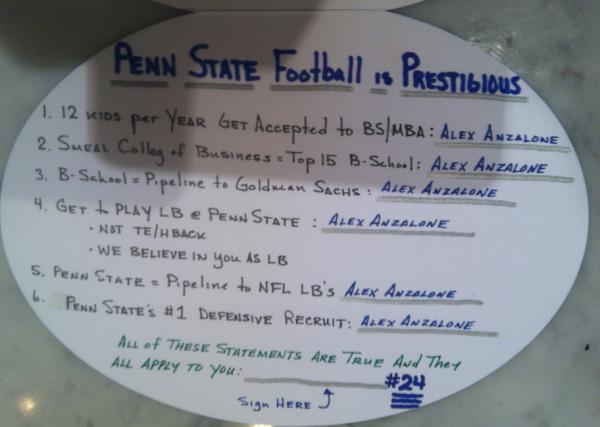 PENN STATE Football is PRESTIGIOUS
1. 12 KIDS per YEAR GET Accepted to BS/MBA: ALEX ANZALONE
2. SMEAL Colleg of BUSINESS = Top 15 B-School: ALEX ANZALONE
3. B-School = Pipeline to Goldman SACHS: ALEX ANZALONE
4. GET to PLAY LB @ PENN STATE : ALEX ANZALONE
• NOT TE/HBACK
• WE BELIEVE IN you AS LB
5. PENN STATE = Pipeline to NFL LB's ALEX ANZALONE
6. PENN STATE'S #1 DEFENSIVE RECRUIT: ALEX ANZALONE
ALL of THESE STATEMENTS ARE TRUE And They
ALL APPLY to You: #24
Sign HERE